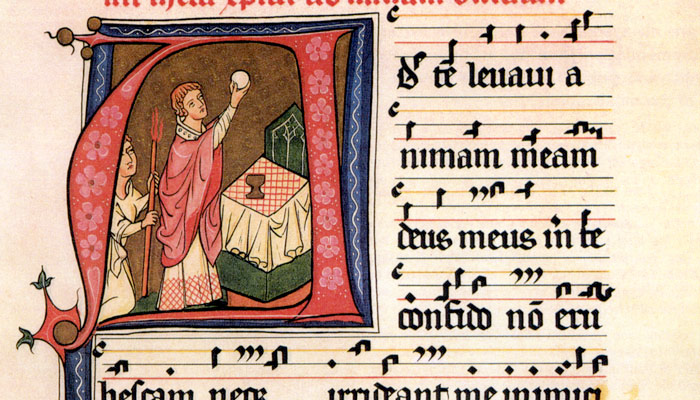 AD te leuaui a
nimam meam
deus meus in te
confido nō eru
bescam neqꝫ irrideant me inimici